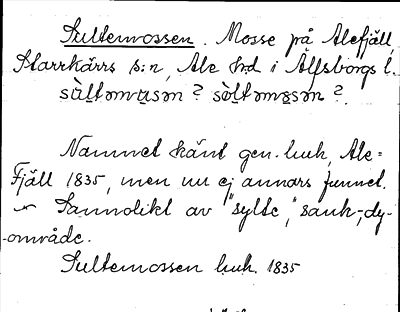 Sultemossen. Mosse på Alefjäll,
Starrkärrs s:n, Ale hd i Älfsborgs l.
sùltəmusən? sòltəmosən?
Namnet känt gen. huk, Ale=
Fjäll 1835, men nu ej annars funnet.
Sannolikt av "sylte," sank-, dy-
område.
Sultemossen huk. 1835